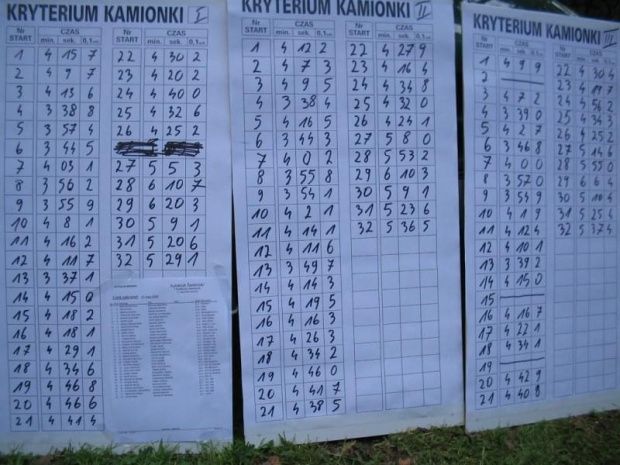 KRYTERIUM KAMIONKI I
Nr START CZAS min. sek. 0,1 Nr START CZAS min. sek. 0,1
1 4 15 7 22 4 30 2
2 4 9 7 23 4 20 2
3 4 13 6 24 4 40 0
4 3 38 8 25 4 32 6
5 3 57 4 26 4 25 2
6 3 44 5
7 4 03 1 27 5 5 3
8 3 56 2 28 6 10 7
9 3 55 9 29 6 20 3
10 4 8 1 30 5 9 1
11 4 16 2 31 5 20 6
12 4 11 7 32 5 29 1
13 3 37 1
14 4 15 0
15 4 18 2
16 4 18 1
17 4 29 1
18 4 34 6
19 4 46 8
20 4 46 6
21 4 41 4
KRYTERIUM KAMIONKI II
Nr START CZAS min. sek. 0,1 Nr START CZAS min. sek. 0,1
1 4 12 2 22 4 27 9
2 4 7 3 23 4 16 4
3 4 9 5 24 4 34 8
4 3 38 4 25 4 32 0
5 4 16 5 26 4 24 1
6 3 44 3 27 5 8 0
7 4 0 2 28 5 53 2
8 3 55 8 29 6 10 3
9 3 54 1 30 5 9 1
10 4 2 1 31 5 23 6
11 4 14 1 32 5 36 5
12 4 11 6
13 3 49 7
14 4 14 3
15 4 19 5
16 4 16 3
17 4 26 3
18 4 34 2
19 4 46 0
20 4 41 7
21 4 38 5
KRYTERIUM KAMIONKI III
Nr START CZAS min. sek. 0,1 Nr START CZAS min. sek. 0,1
1 4 9 9 22 4 30 4
2 23 4 17
3 4 7 2 24 4 56 2
4 3 39 0 25 4 34 3
5 4 2 7 26 4 25 2
6 3 46 8 27 5 14 6
7 4 0 0 28 5 55 0
8 3 57 0 29 6 6 4
9 3 53 9 30 5 10 4
10 4 1 9 31 5 25 4
11 4 12 4 32 5 37 4
12 4 10 1
13 3 39 2
14 4 15 0
15
16 4 16 7
17 4 22 1
18 4 34 1
19
20 4 42 9
21 4 40 8